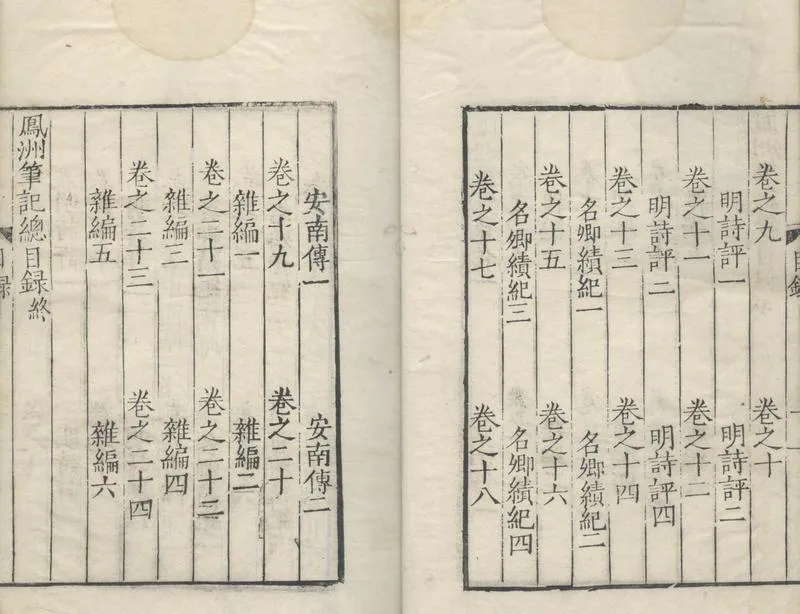 目錄
卷之九　卷之十
明詩評一　明詩評二
卷之十一　卷之十二
明詩評三　明詩評四
卷之十三　卷之十四
名卿績紀一　名卿績紀二
卷之十五　卷之十六
名卿績紀三　名卿績紀四
卷之十七　卷之十八
安南傳一　安南傳二
卷之十九　卷之二十
雜編一　雜編二
卷之二十一　卷之二十二
雜編三　雜編四
卷之二十三　卷之二十四
雜編五　雜編六
鳳洲筆記總目録終